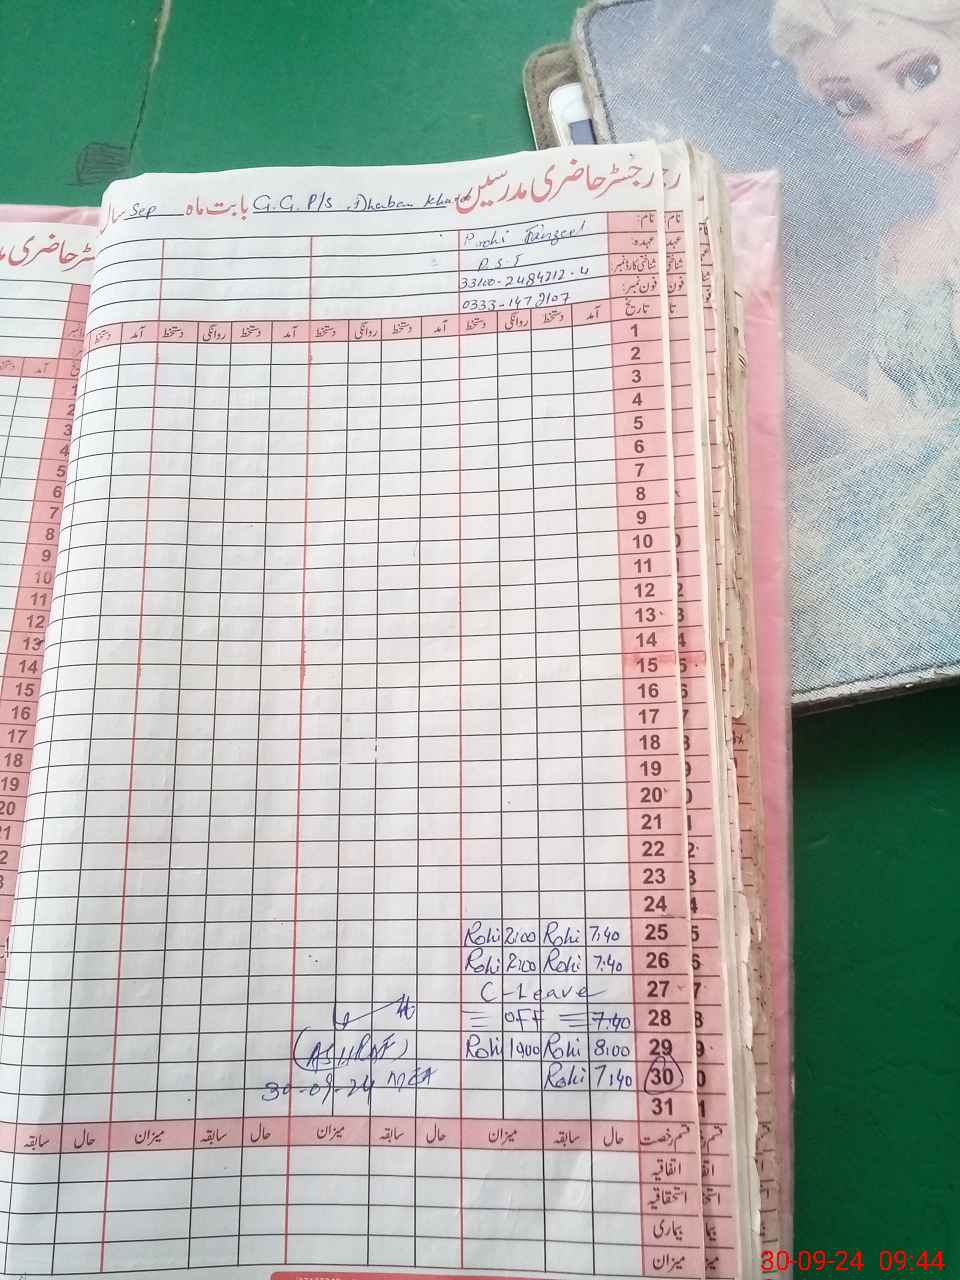 رجسٹر حاضری مدرسیں بابت ماہ G.G.P/S Dhaban سال Sep
نام:
عہدہ: P.S.T
شناختی کارڈ نمبر: 33100-2484212-4
فون نمبر:
تاریخ آمد دستخط روانگی دستخط آمد دستخط روانگی دستخط آمد دستخط روانگی دستخط آمد دستخط
1
2
3
4
5
6
7
8
9
10
11
12
13
14
15
16
17
18
19
20
21
22
23
24
25 7:40 Rohi 2:00 Rohi
26 7:40 Rohi 2:00 Rohi
27 C-Leave
28 7:40 OFF
29 8:00 Rohi 1900 Rohi
30 7:40 Rohi
31
(ASHRAF)
30-09-24 MEA
قسم رخصت حال سابقہ میزان حال سابقہ میزان حال سابقہ میزان حال سابقہ
اتفاقیہ
استحقاقیہ
بیماری
میزان
30-09-24 09:44